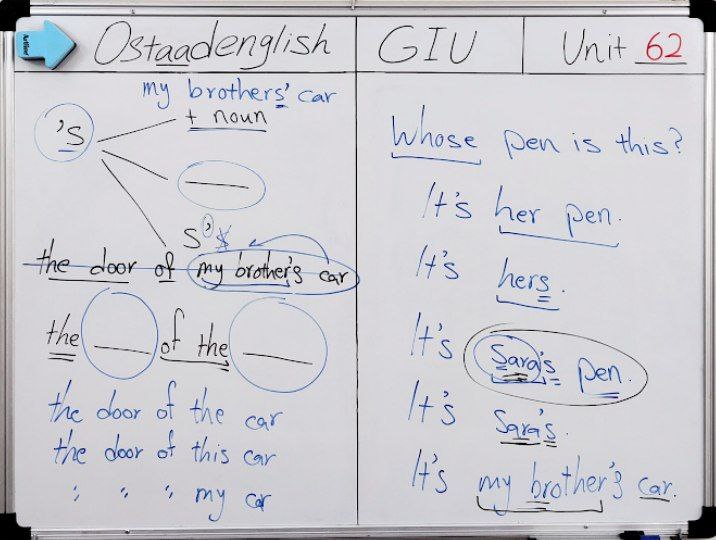 Ostaadenglish GIU Unit 62
my brothers' car
's + noun
s's
the door of my brother's car
the ____ of the ____
the door of the car
the door of this car
" " " my car
Whose pen is this?
It's her pen.
It's hers.
It's Sara's pen.
It's Sara's.
It's my brother's car.